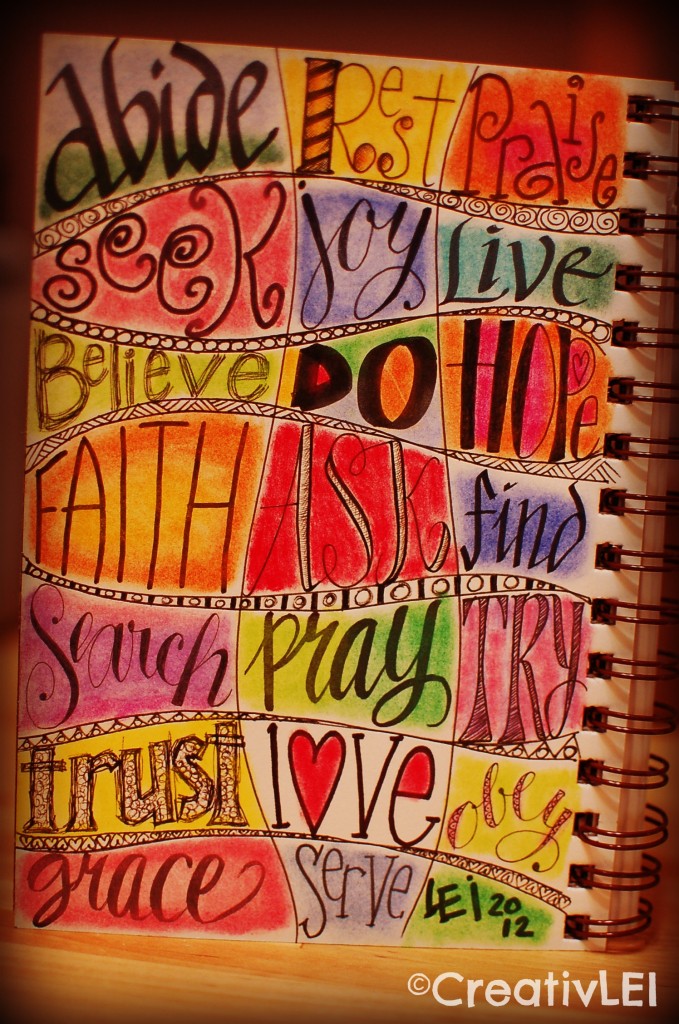 abide Rest Praise
seek joy Live
Believe DO HOPe
FAITH ASK find
Search pray TRY
trust love obey
grace serve LEi 20
12
©CreativLEI